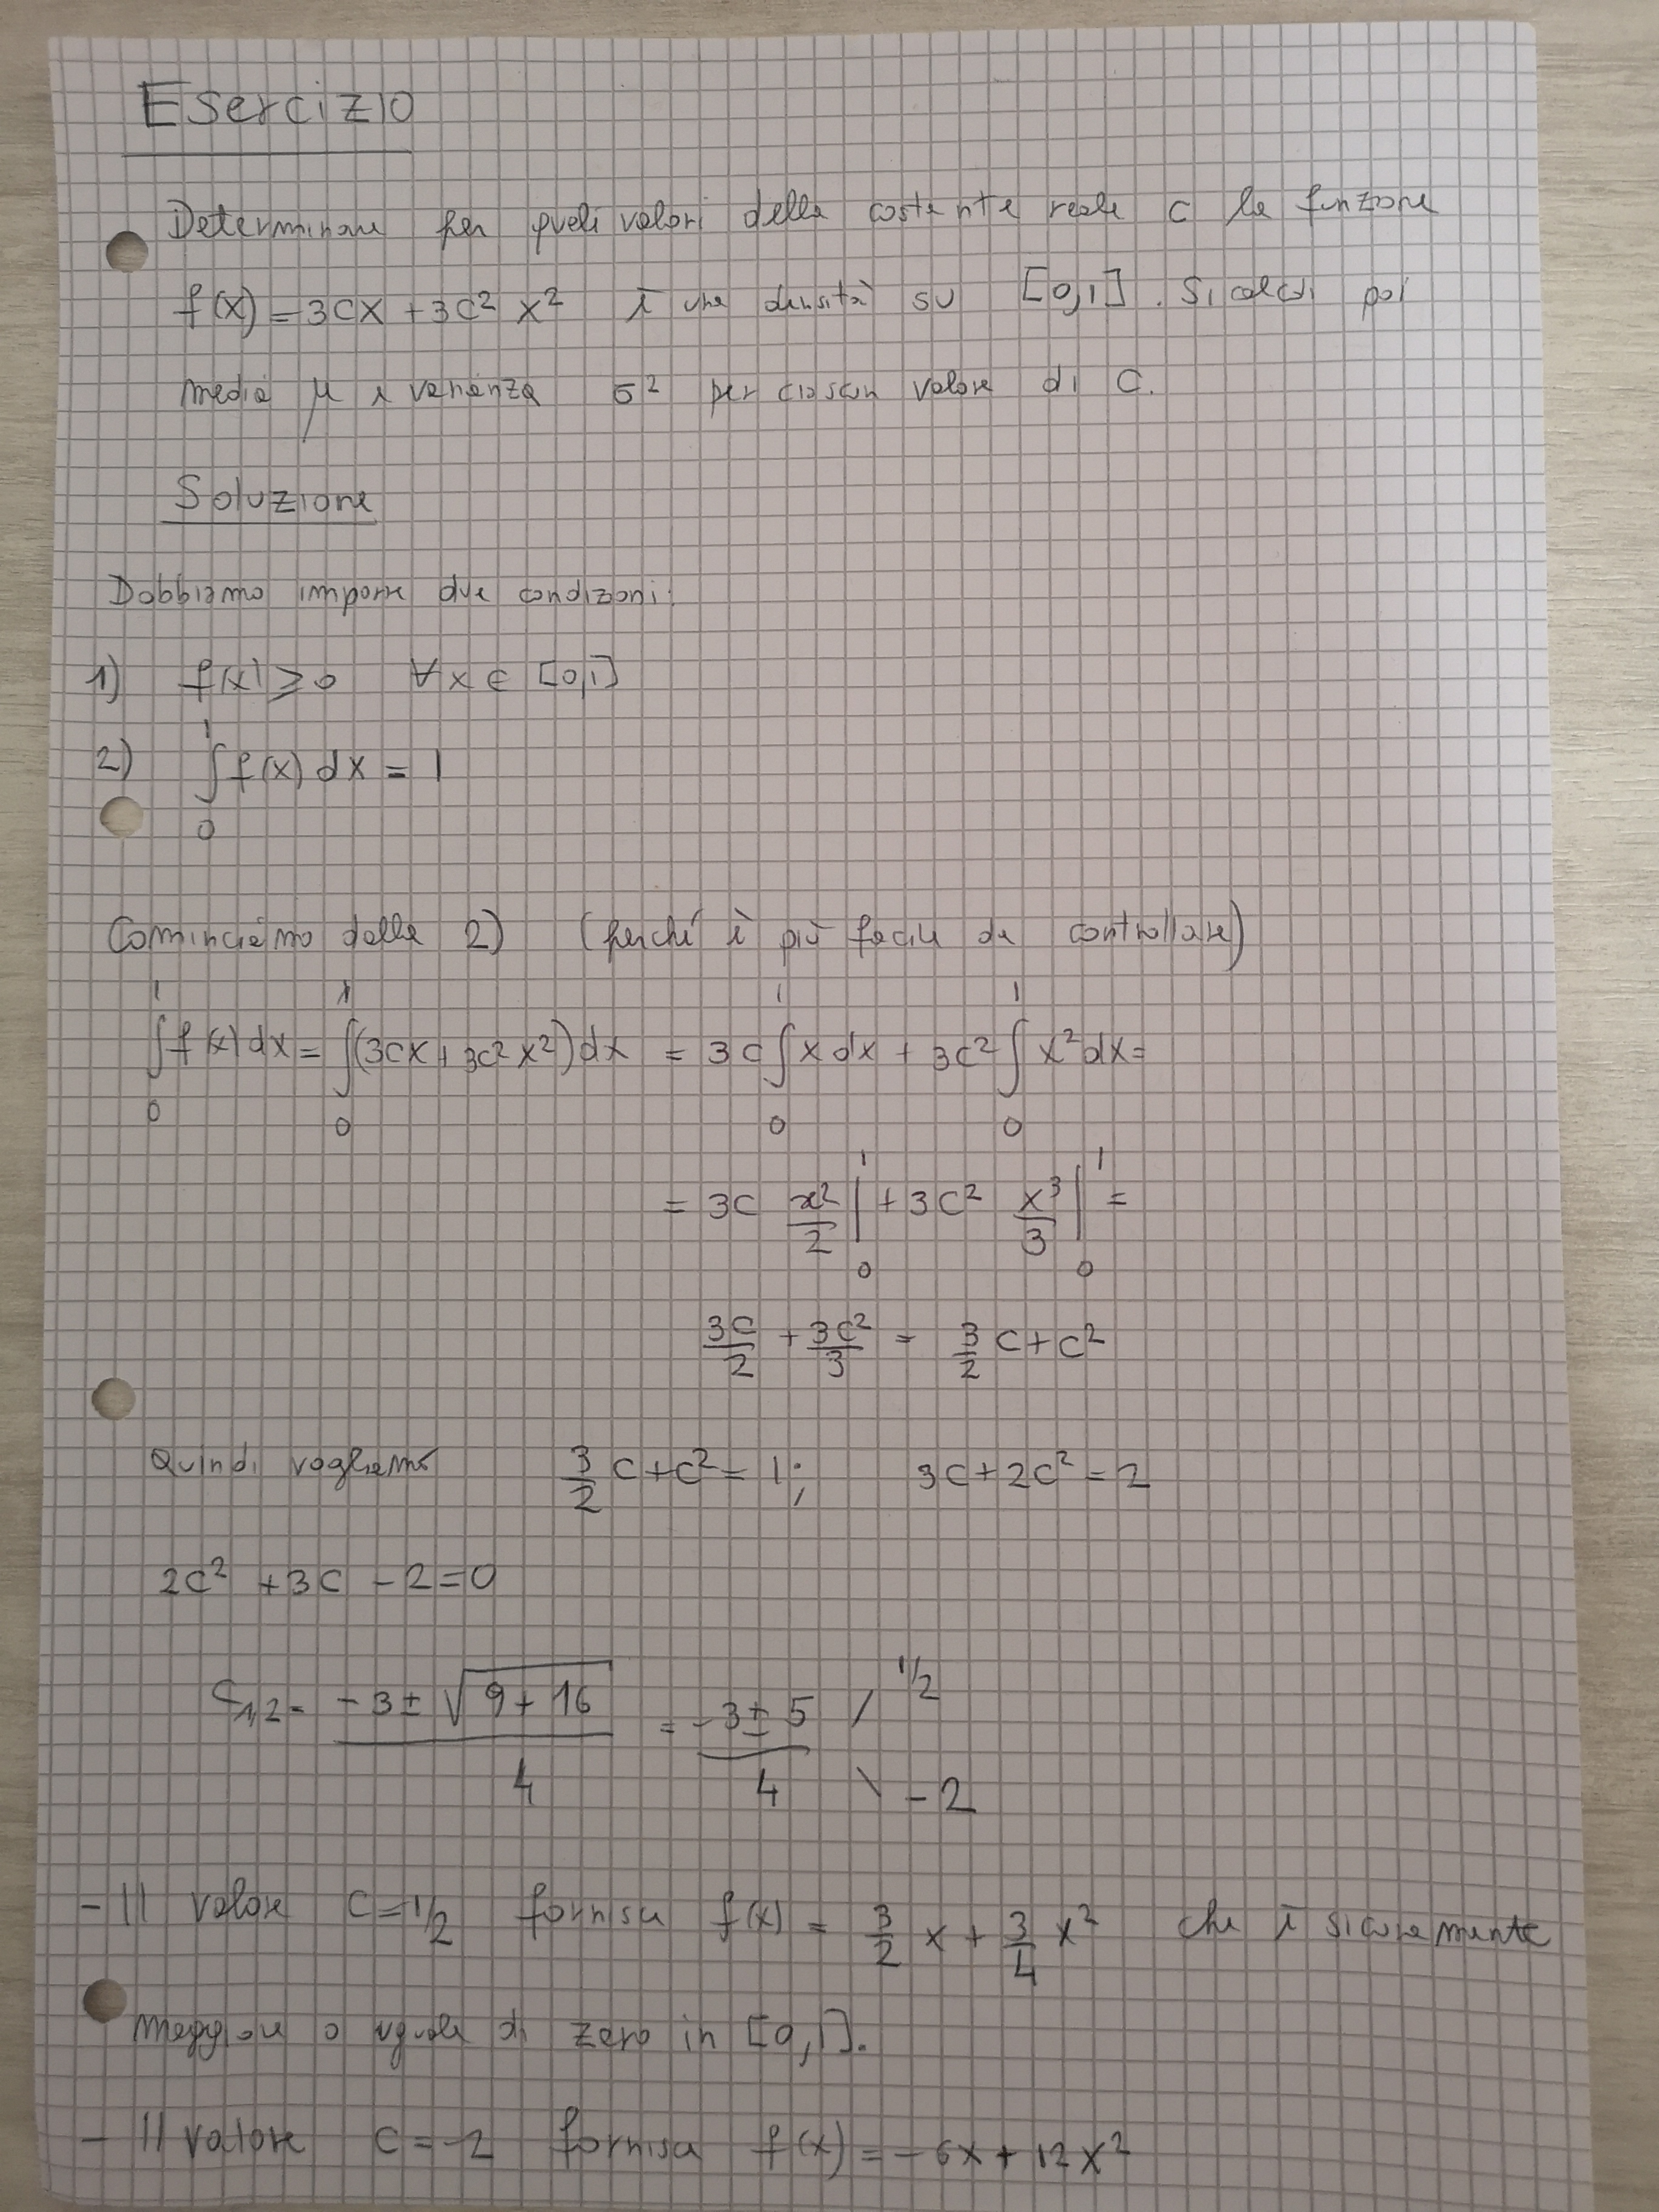 Esercizio
Determinare per quali valori della costante reale c la funzione
f(x) = 3cx + 3c² x² è una densità su [0,1]. Si calcoli poi
media μ e varianza σ² per ciascun valore di c.
Soluzione
Dobbiamo imporre due condizioni:
1) f(x) ≥ 0 ∀x ∈ [0,1]
2) ∫₀¹ f(x) dx = 1
Cominciamo dalla 2) (perché è più facile da controllare)
∫₀¹ f(x) dx = ∫₀¹ (3cx + 3c² x²) dx = 3c ∫₀¹ x dx + 3c² ∫₀¹ x² dx =
= 3c x²/2 |₀¹ + 3c² x³/3 |₀¹ =
3c/2 + 3c²/3 = 3/2 c + c²
Quindi vogliamo 3/2 c + c² = 1; 3c + 2c² = 2
2c² + 3c - 2 = 0
c₁,₂ = (-3 ± √(9 + 16))/4 = (-3 ± 5)/4 / 1/2 \ -2
- Il valore c = 1/2 fornisce f(x) = 3/2 x + 3/4 x² che è sicuramente
maggiore o uguale di zero in [0,1].
- Il valore c = -2 fornisce f(x) = -6x + 12x²